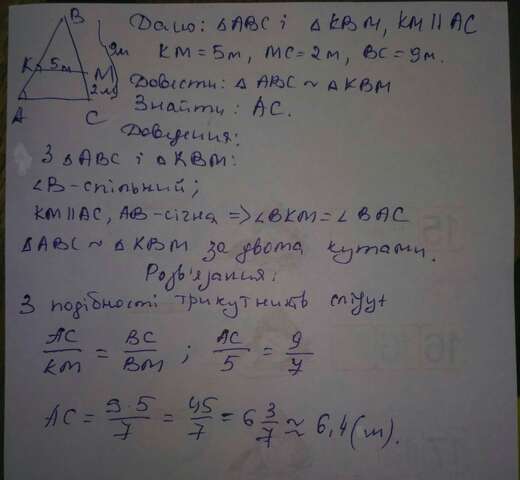 B
Дано: △ABC і △KBM, KM || AC
9м
KM = 5м, MC = 2м, BC = 9м.
K 5м M
2м
Довести: △ABC ~ △KBM
A C
Знайти: AC.
Доведення:
З △ABC і △KBM:
∠B-спільний;
KM || AC, AB-січна => ∠BKM = ∠BAC
△ABC ~ △KBM за двома кутами.
Розв'язання:
З подібності трикутників слідує
AC/KM = BC/BM ; AC/5 = 9/7
AC = 9·5/7 = 45/7 = 6 3/7 ≈ 6,4 (м).